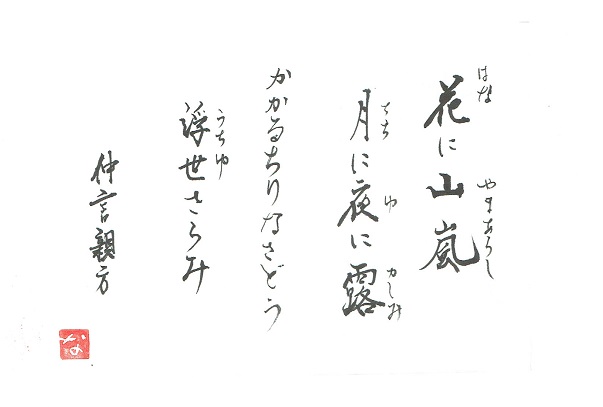 はな やまあらし
花に山嵐
ちち ゆ かしみ
月に夜に露
かかるちりなさどう
うちゆ
浮世さらみ
仲言親方